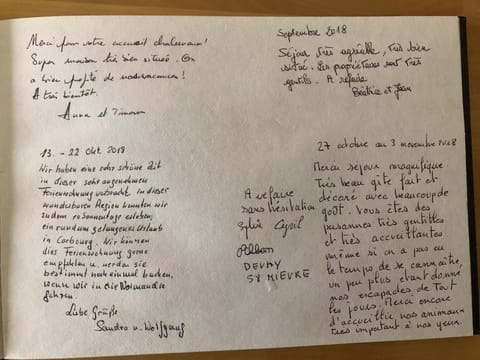 Merci pour votre accueil chaleureux!
Super maison très bien située. On
a bien profité de nos vacances!
A très bientôt
Anna et
Septembre 2018
Séjour très agréable, très bien
situé. Les propriétaires sont très
gentils. A refaire
Béatrice et Jean
13. - 22 Okt. 2018
Wir haben eine sehr schöne Zeit
in dieser sehr angenehmen
Ferienwohnung verbracht. In dieser
wunderbaren Region konnten wir
zudem Sonnentage erleben,
ein rundum gelungenes Urlaub
in Carbourg. Wir können
dies Ferienwohnung gerne
empfehlen u. werden sie
bestimmt noch einmal buchen,
wenn wir in die Normandie
fahren
Liebe Grüße
Sandra u. Wolfgang
A refaire
sans hésitation
Sylvie Cyril
DEVAY
58 MIEVRE
27 octobre au 3 novembre 2018
Merci séjour magnifique.
Très beau gîte fait et
décoré avec beaucoup de
goût. Vous êtes des
personnes très gentilles
et très accueillantes
même si on a pas eu
le temps de se connaître,
un peu plus étant donné
nos escapades de tout
les jours. Merci encore
d'accueillir nos animaux
très important à nos yeux.